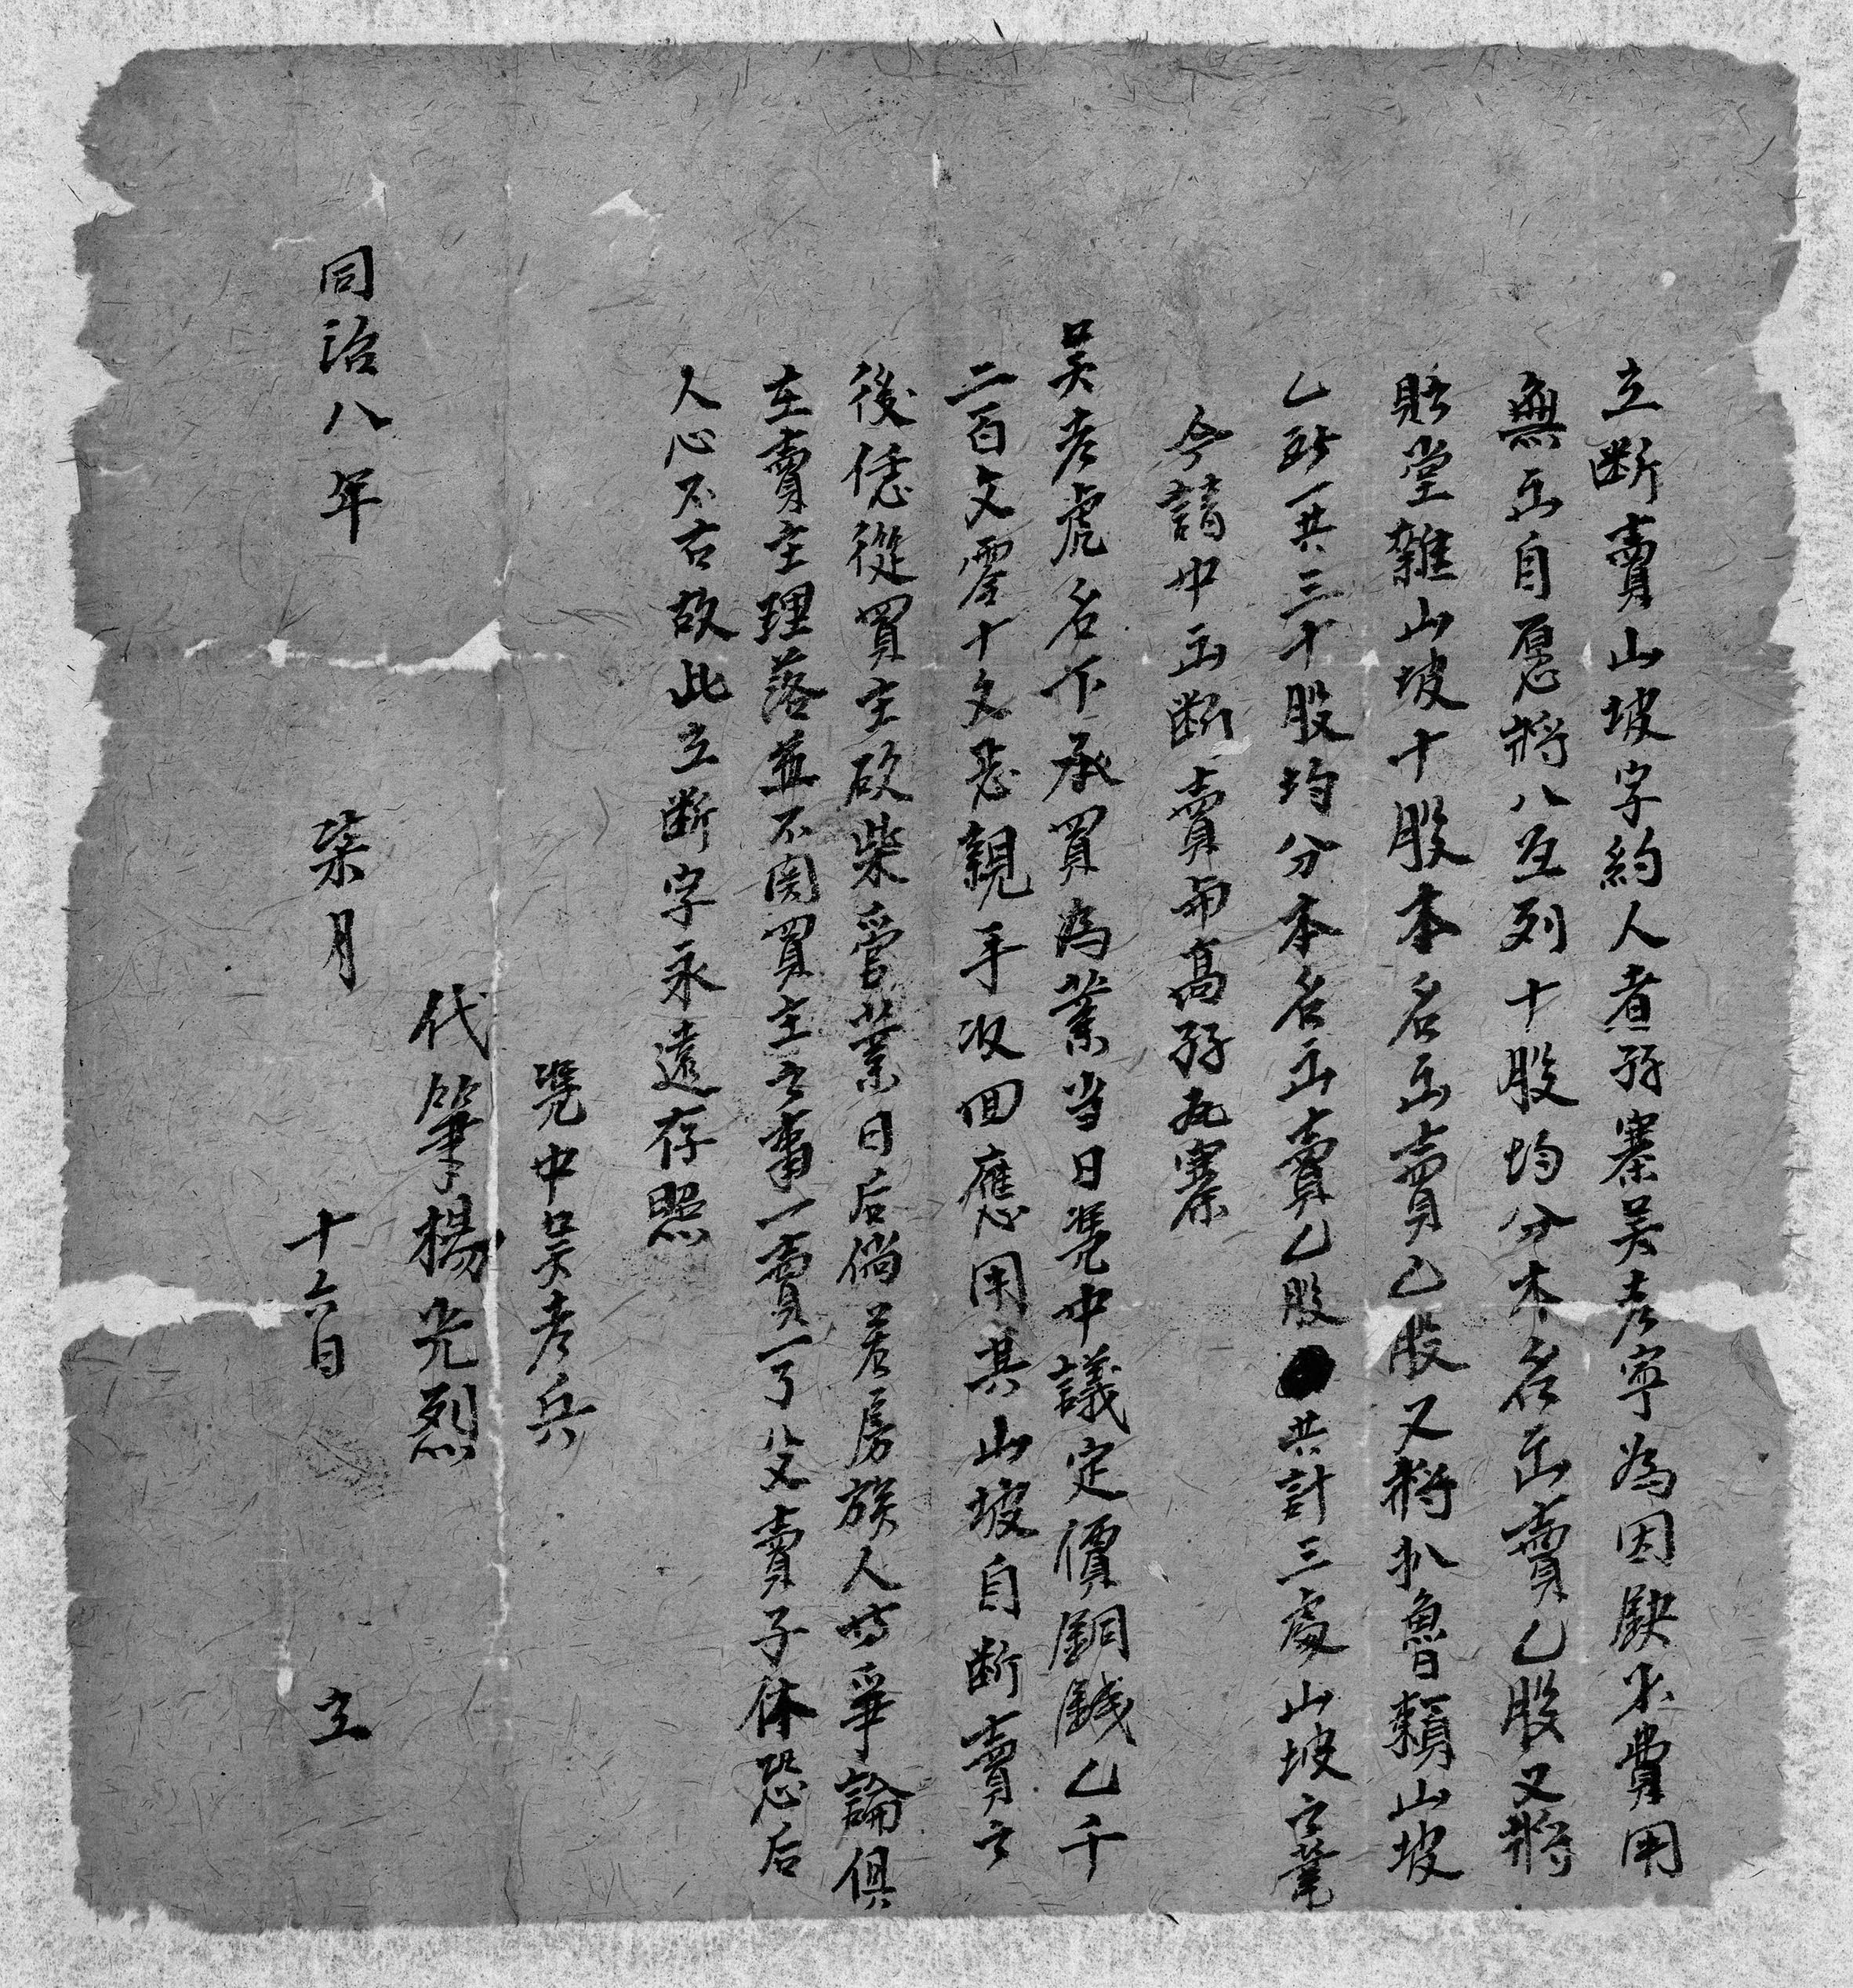 立断賣山坡字約人者孖寨吴老寧為因缺少費用
無出自愿將八並列十股均分本名出賣乙股又將
賍堂雜山坡十股本名出賣乙股又將扒魯賴山坡
乙所一共三十股均分本名出賣乙股 共計三處山坡
今請中出断賣而高孖瓦寨
吴老虎名下承買為業当日凴中議定價銅錢乙千
二百文零十文悉親手收回應用其山坡自断賣之
後恁從買主砍柴管業日后倘若房族人等爭論俱
在賣主理落並不関買主之事一賣一了父賣子休恐后
人心不古故此立断字永遠存照
凴中吴老兵
代筆楊光烈
同治八年 柒月 十六日 立